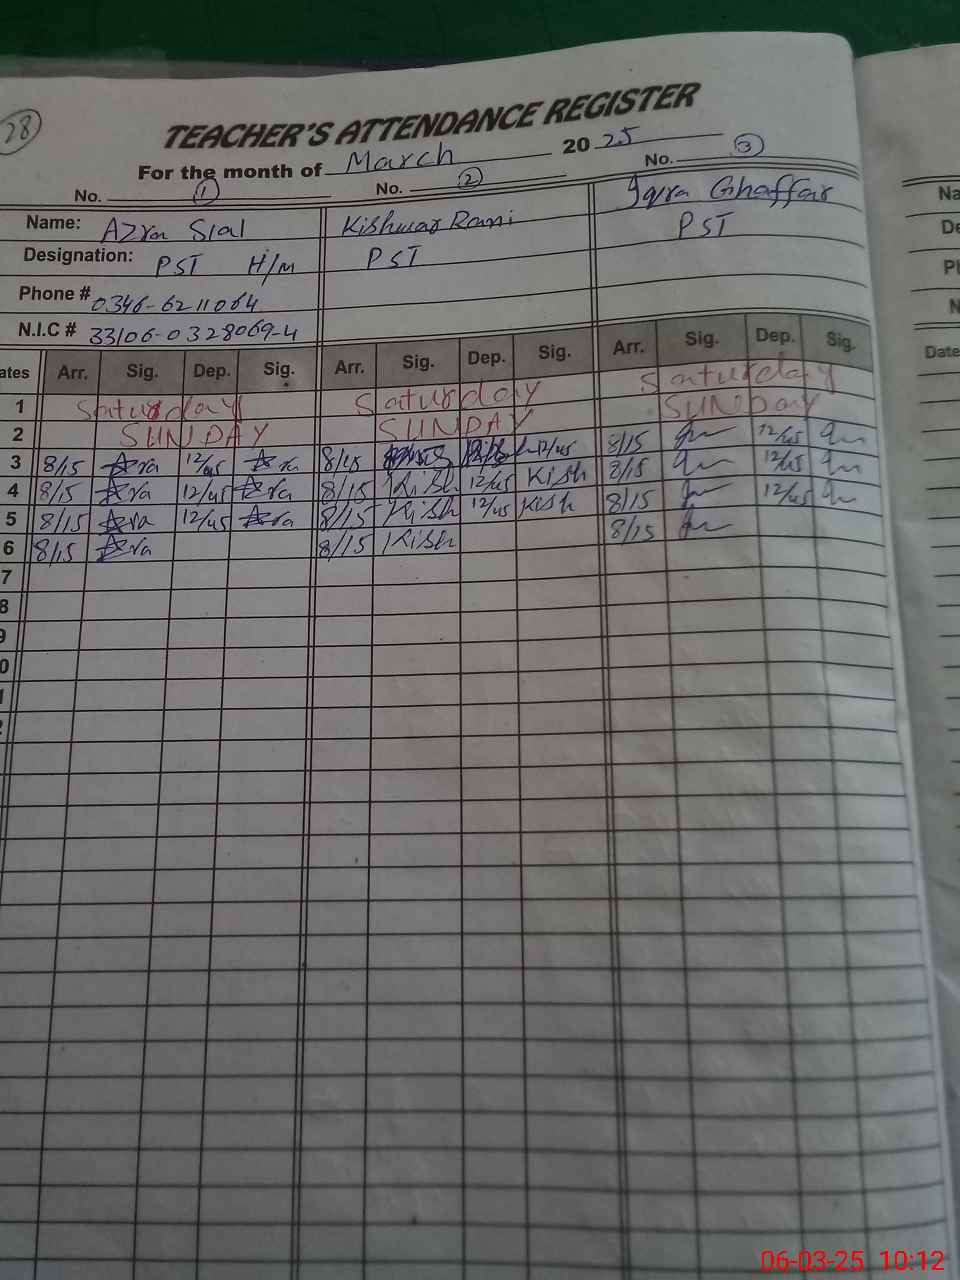 28
TEACHER'S ATTENDANCE REGISTER
For the month of March 2025
No. 1 No. 2 No. 3
Name: Azra Sial Kishwar Rani Iqra Ghaffar
Designation: PST H/M PST PST
Phone # 0346-6211064
N.I.C # 33106-0328069-4
ates Arr. Sig. Dep. Sig. Arr. Sig. Dep. Sig. Arr. Sig. Dep. Sig.
1 Saturday Saturday Saturday
2 SUNDAY SUNDAY SUNDAY
3 8/15 Azra 12/45 Azra 8/15 12/45 8/15 12/45
4 8/15 Azra 12/45 Azra 8/15 Kish 12/45 Kish 8/15 12/45
5 8/15 Azra 12/45 Azra 8/15 Kish 12/45 Kish 8/15 12/45
6 8/15 Azra 8/15 Kish 8/15
7
8
9
0
1
2
Na
De
Ph
N
Date
06-03-25 10:12